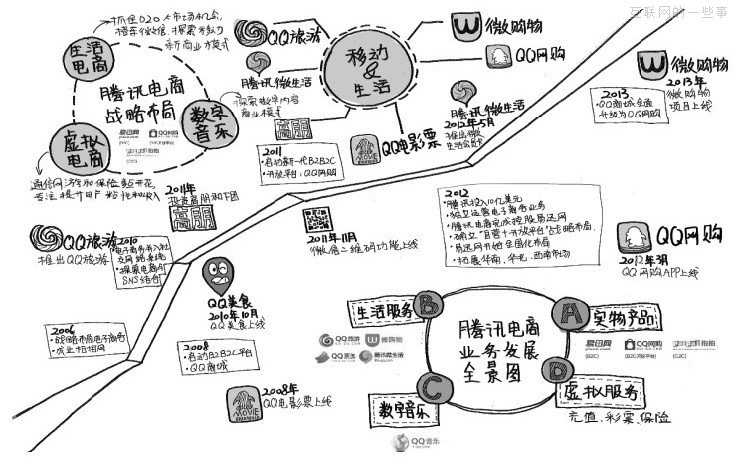 互联网的一些事
抓住O2O人市场机会,
搭车微信,探索移动
新商业模式
生活
电商
腾讯电商
战略布局
易迅网
QQ网购
数字
音乐
探索数字内容
商业模式
虚拟
电商
通信网游和保险
QQ旅游
腾讯微生活
高朋
移动
&
生活
微购物
QQ网购
腾讯微生活
2012年5月
QQ电影票
2013
微购物
2013年
微购物
项目上线
2011
·启动新一代B2B2C
·开放平台:QQ网购
2011年
投资高朋和F团
高朋
2011年11月
微信二维码功能上线
2012
·腾讯投入10亿美元
·独立运营电子商务业务
·腾讯电商完成控股易迅网
·确立"自营+开放平台"战略布局
·易迅网开始全国化布局
·拓展华南、华北、西南市场
QQ网购
2012年3月
QQ网购APP上线
QQ旅游
推出QQ旅游
2010
SNS结合
QQ美食
2010年10月
QQ美食上线
2006
·战略布局电子商务
·成立拍拍网
2008
·启动B2B2C平台
·QQ商城
2008年
QQ电影票上线
生活服务
B
A
实物产品
QQ旅游
微购物
QQ票务
腾讯微生活
腾讯电商
业务发展
全景图
易迅网
(B2C)
QQ网购
拍拍
(C2C)
C
D
数字音乐
虚拟服务
充值、彩票、保险
QQ音乐